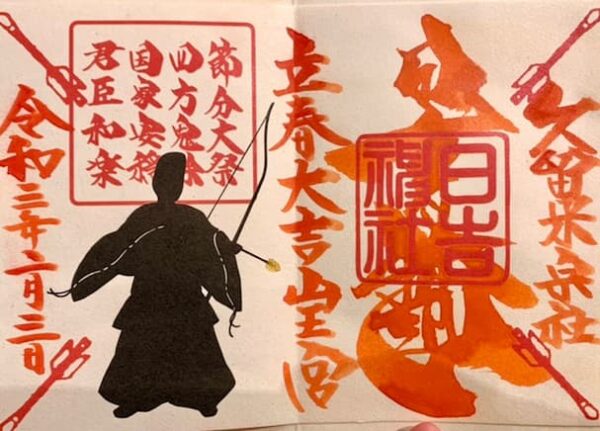 久留米宗社
日吉
神社
立春大吉山王宮
節分大祭
四方鬼除
国家安穏
君臣和楽
令和三年二月三日